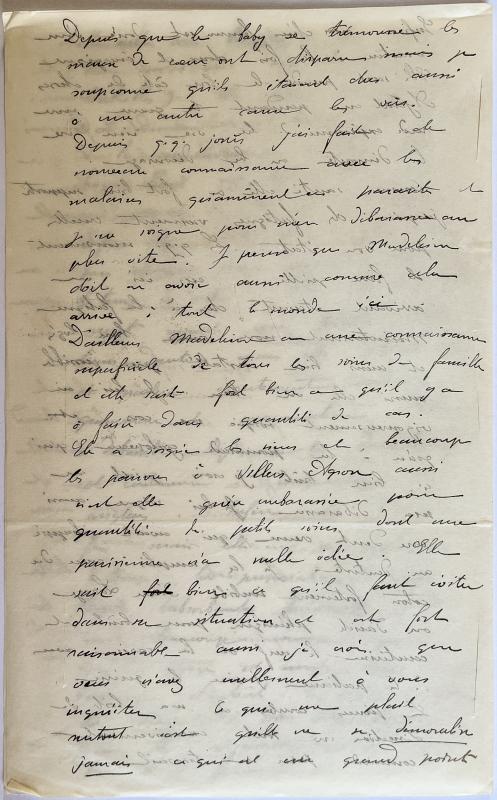 Depuis que le baby se trémousse les
maux de cœur ont disparu mais je
soupçonne qu'ils étaient dus aussi
à une autre cause les vers.
Depuis qq jours j'ai fait de
nouveau connaissance avec les
malaises qu'amènent ces parasites et
je me soigne pour m'en débarrasser au
plus vite. Je pense que Madeleine
doit en avoir aussi comme cela
arrive à tout le monde ici
D'ailleurs Madeleine a une connaissance
superficielle de tous les soins de famille
et elle sait fort bien ce qu'il y a
à faire dans quantité de cas.
Elle a soigné les siens et beaucoup
les pauvres à Villers Agron aussi
n'est elle guère embarassée pour
quantité de petits soins dont une
parisienne n'a nulle idée. Elle
sait fort bien ce qu'il faut éviter
dans sa situation et est fort
raisonnable aussi je crois que
vous n'avez nullement à vous
inquiéter. Ce qui me plait
surtout c'est qu'elle ne se démoralise
jamais ce qui est un grand point